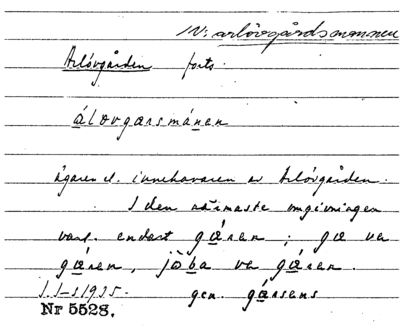 N: arlövgårdsmannen
Arlövgården forts.
álovgarsmánen
Ägaren el. innehavaren av Arlövgården.
I den närmaste omgivningen
vard. endast gáren; ga va
gáren, jöba va gáren.
1935. gen. gársens
Nr 5528.